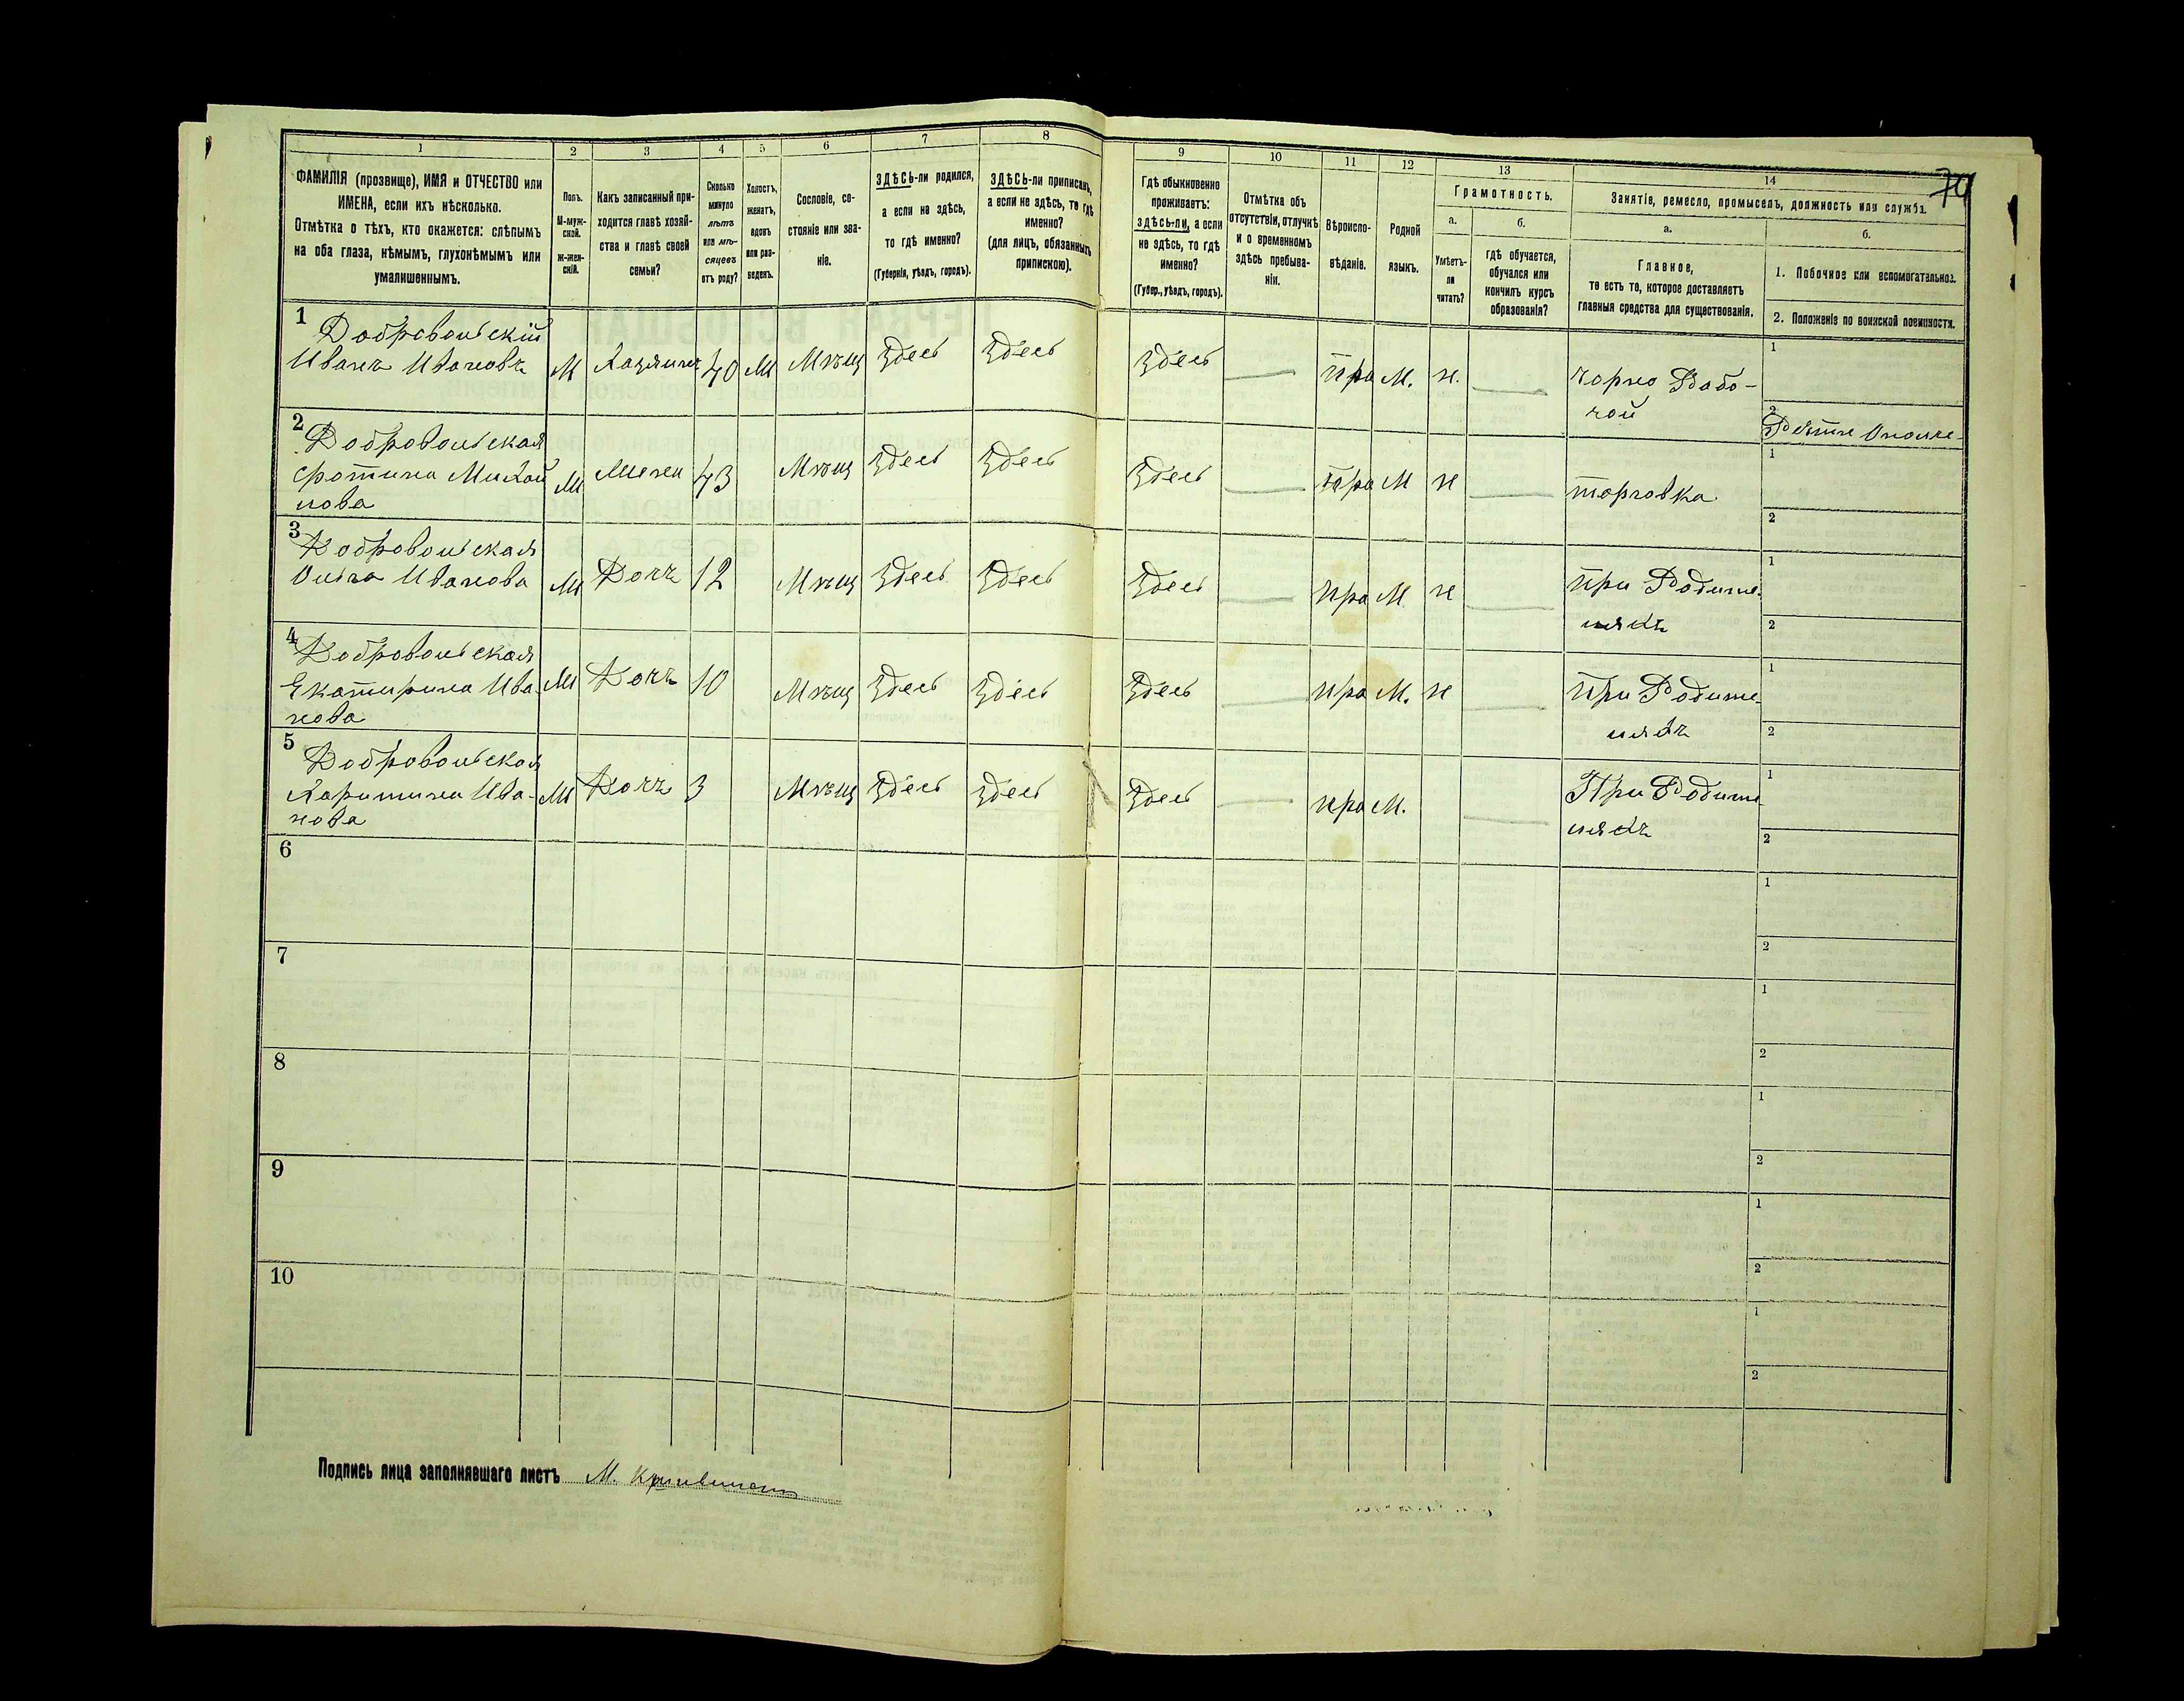 70
1
2
3
4
5
6
7
8
9
10
11
12
13
14
ФАМИЛІЯ (прозвище), ИМЯ и ОТЧЕСТВО или
ИМЕНА, если ихъ нѣсколько.
Отмѣтка о тѣхъ, кто окажется: слѣпымъ
на оба глаза, нѣмымъ, глухонѣмымъ или
умалишеннымъ.
Полъ.
М-муж-
ской.
ж-жен-
скій.
Какъ записанный при-
ходится главѣ хозяй-
ства и главѣ своей
семьи?
Сколько
минуло
лѣтъ
или мѣ-
сяцевъ
отъ роду?
Холостъ,
женатъ,
вдовъ
или раз-
веденъ.
Сословіе, со-
стояніе или зва-
ніе.
ЗДѢСЬ-ли родился,
а если не здѣсь,
то гдѣ именно?
(Губернія, уѣздъ, городъ).
ЗДѢСЬ-ли приписанъ,
а если не здѣсь, то гдѣ
именно?
(для лицъ, обязанныхъ
припискою).
Гдѣ обыкновенно
проживаетъ:
здѣсь-ли, а если
не здѣсь, то гдѣ
именно?
(Губер., уѣздъ, городъ).
Отмѣтка объ
отсутствіи, отлучкѣ
и о временномъ
здѣсь пребыва-
ніи.
Вѣроиспо-
вѣданіе.
Родной
языкъ.
Грамотность.
а.
Умѣетъ-
ли
читать?
б.
гдѣ обучается,
обучался или
кончилъ курсъ
образованія?
Занятіе, ремесло, промыселъ, должность или служба.
а.
Главное,
то есть то, которое доставляетъ
главныя средства для существованія.
б.
1. Побочное или вспомогательное.
2. Положеніе по воинской повинности.
1
Добровольскій
Иванъ Ивановъ М Хазяинъ 40 М Мѣщ Здесь Здесь Здесь — пра М. н. — чорно Рабо-
чой
1
2
2
Добровольская
Фотина Михай
лова М Жена 43 Мѣщ Здесь Здесь Здесь — пра М н — торговка
1
2
3
Добровольская
Ольга Иванова М Дочъ 12 Мѣщ Здесь Здесь Здесь — пра М н — при Родите-
ляхъ
1
2
4
Добровольская
Екатирина Ива-
нова М Дочъ 10 Мѣщ Здесь Здесь Здесь — пра М. н — при Родите-
ляхъ
1
2
5
Добровольская
Харитина Ива-
нова М Дочъ 3 Мѣщ Здесь Здесь Здесь — пра М. — При Родите
ляхъ
1
2
6
1
2
7
1
2
8
1
2
9
1
2
10
1
2
Подпись лица заполнявшаго листъ М.